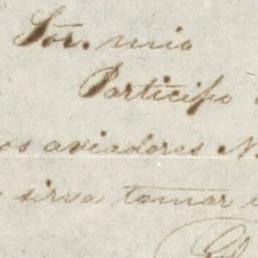 Sõr. mio
Participo
os aviadores N.
sirva tomar